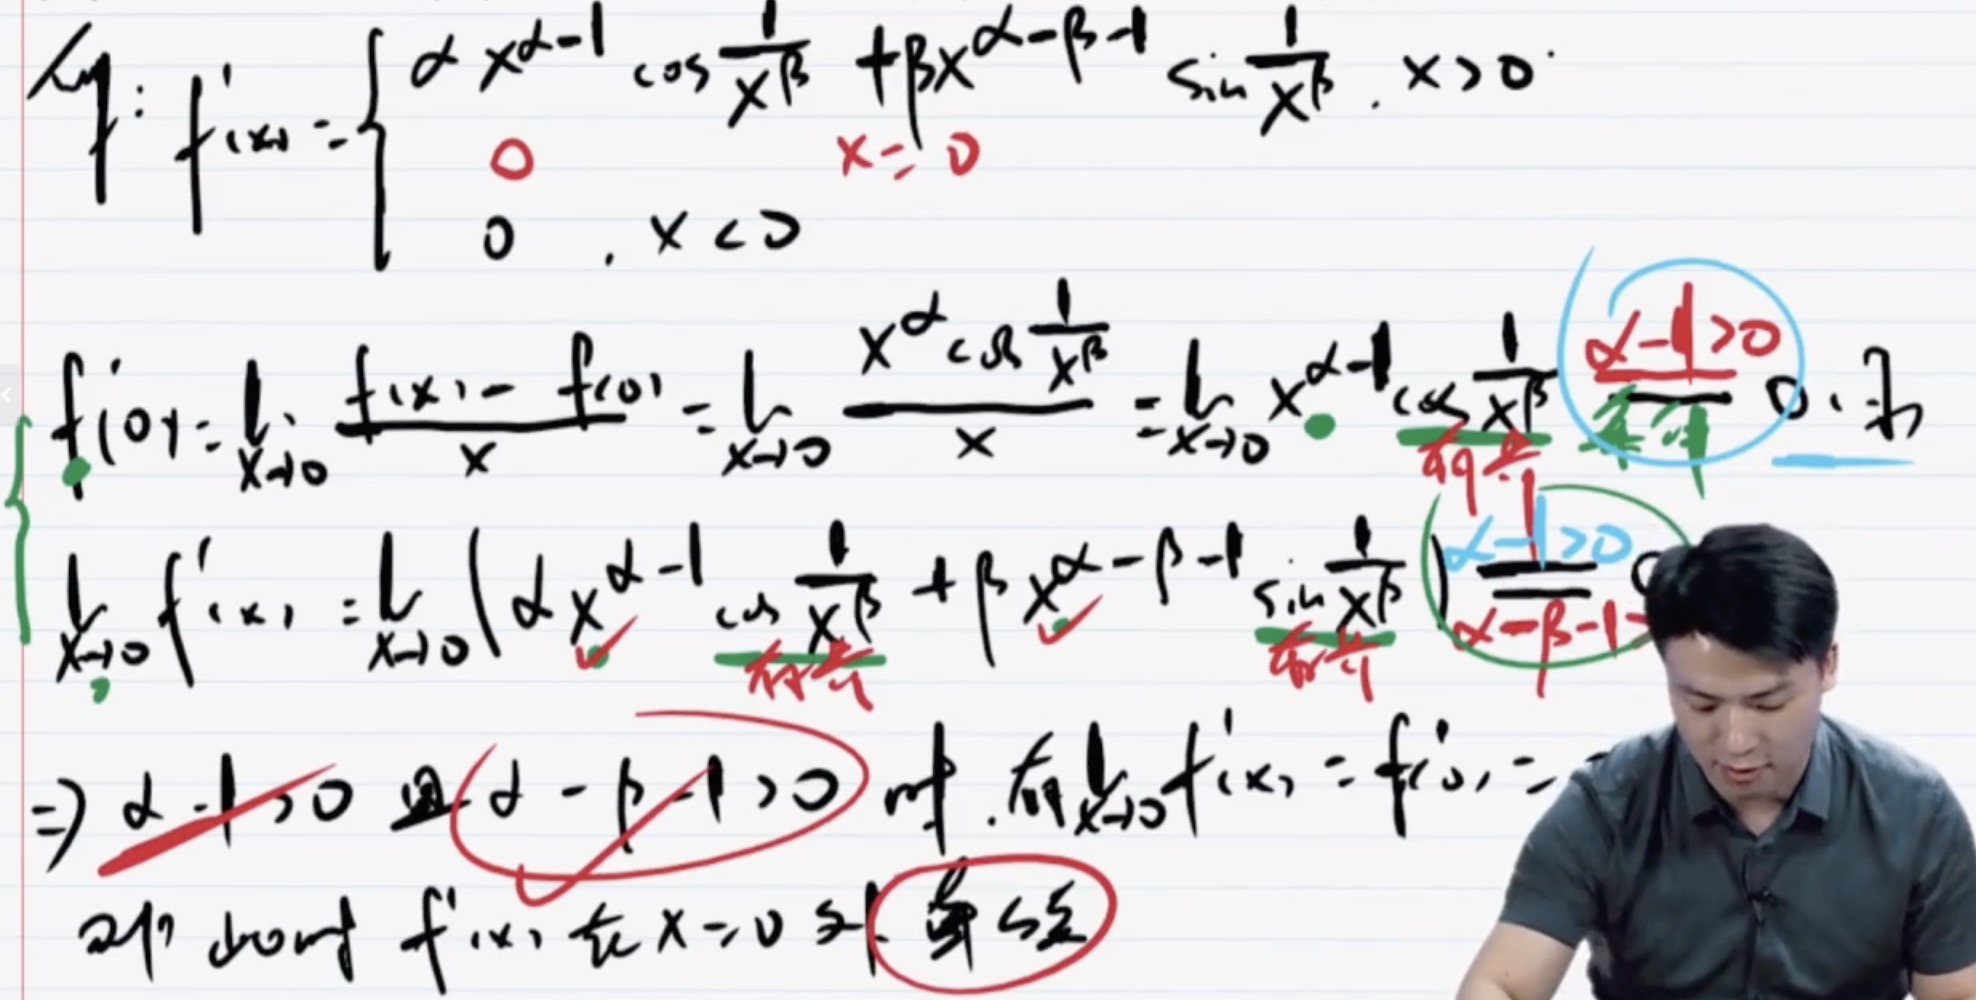 f'(x) = { αx^{α-1} cos 1/x^β + βx^{α-β-1} sin 1/x^β . x>0
0 x=0
0 . x<0
f'(0) = lim_{x→0} (f(x) - f(0))/x = lim_{x→0} (x^α cos 1/x^β)/x = lim_{x→0} x^{α-1} cos 1/x^β α-1>0 条件 0.
有界
lim_{x→0} f'(x) = lim_{x→0} (αx^{α-1} cos 1/x^β + βx^{α-β-1} sin 1/x^β) α-1>0
有界 有界 α-β-1
⇒ α-1>0 且 α-β-1>0 时. 有 lim_{x→0} f'(x) = f'(0) =
f'(x) 在 x=0 处 连续